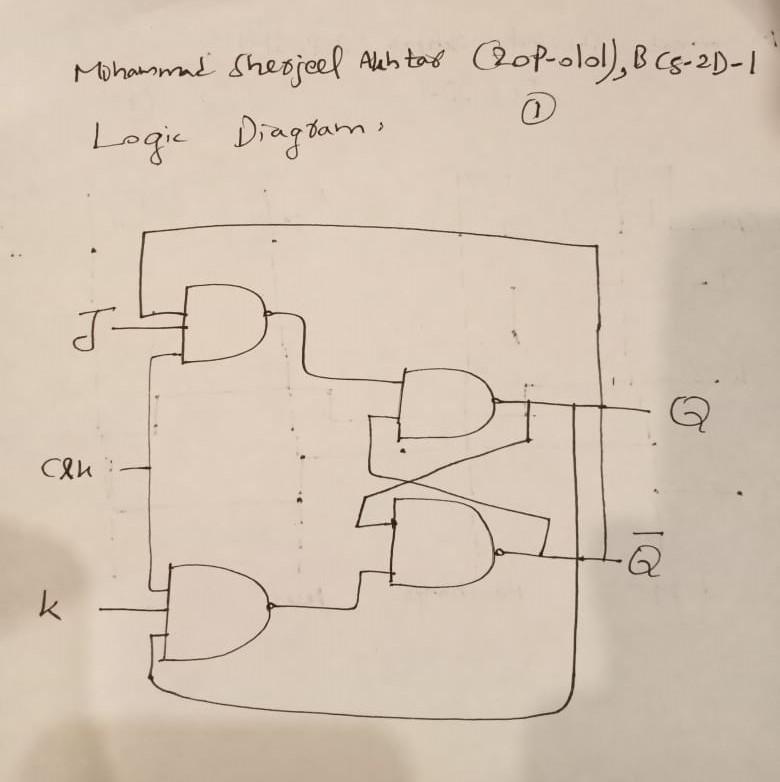 Mohammad Sherjeel Akhtar (20P-0101), BCS-2D-1
①
Logic Diagram:
J
Q
Clk :
Q̅
k